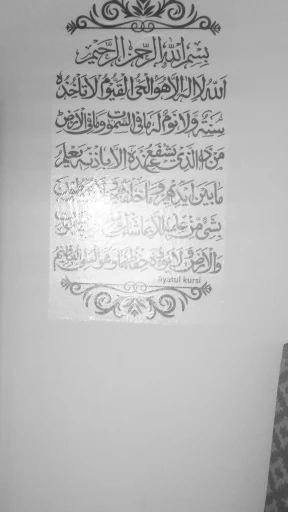 بسم الله الرحمن الرحيم
الله لا اله الا هو الحي القيوم لا تأخذه
سنة ولا نوم له ما في السموت وما في الارض
من ذا الذي يشفع عنده الا باذنه يعلم
ما بين ايديهم وما خلفهم ولا يحيطون
بشيء من علمه الا بما شاء وسع
والارض ولا يؤده حفظهما وهو العلي العظيم
Ayatul kursi